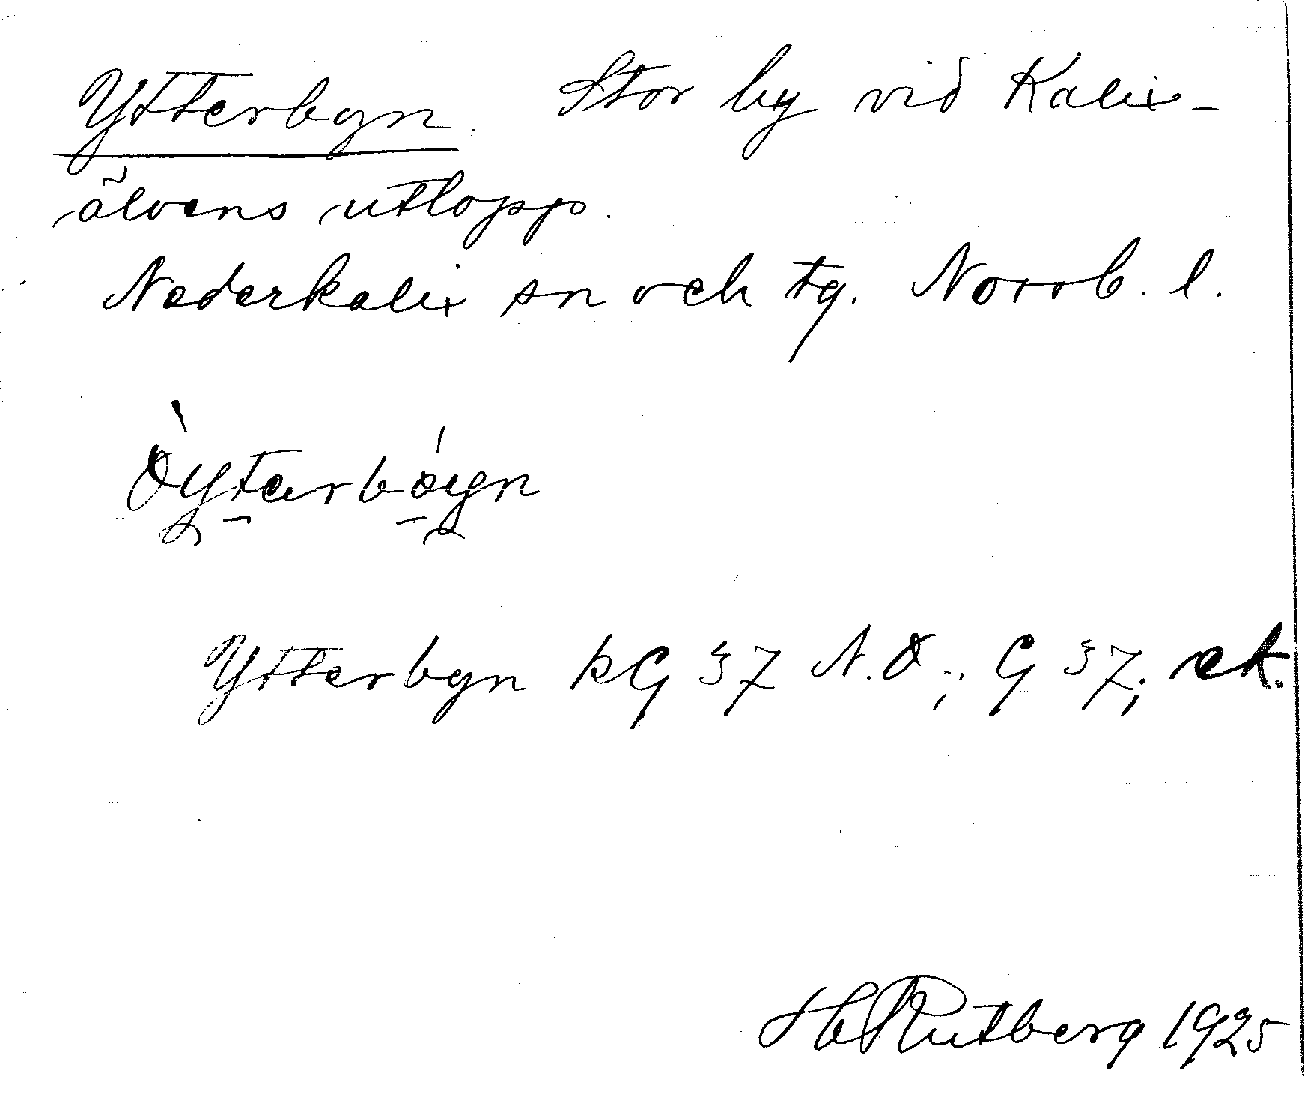 Ytterbyn. Stor by vid Kalix-
älvens utlopp.
Nederkalix sn och tg. Norrb. l.
Ytterbyn kG 37 N.O.; G 37; ek.
H Rutberg 1925